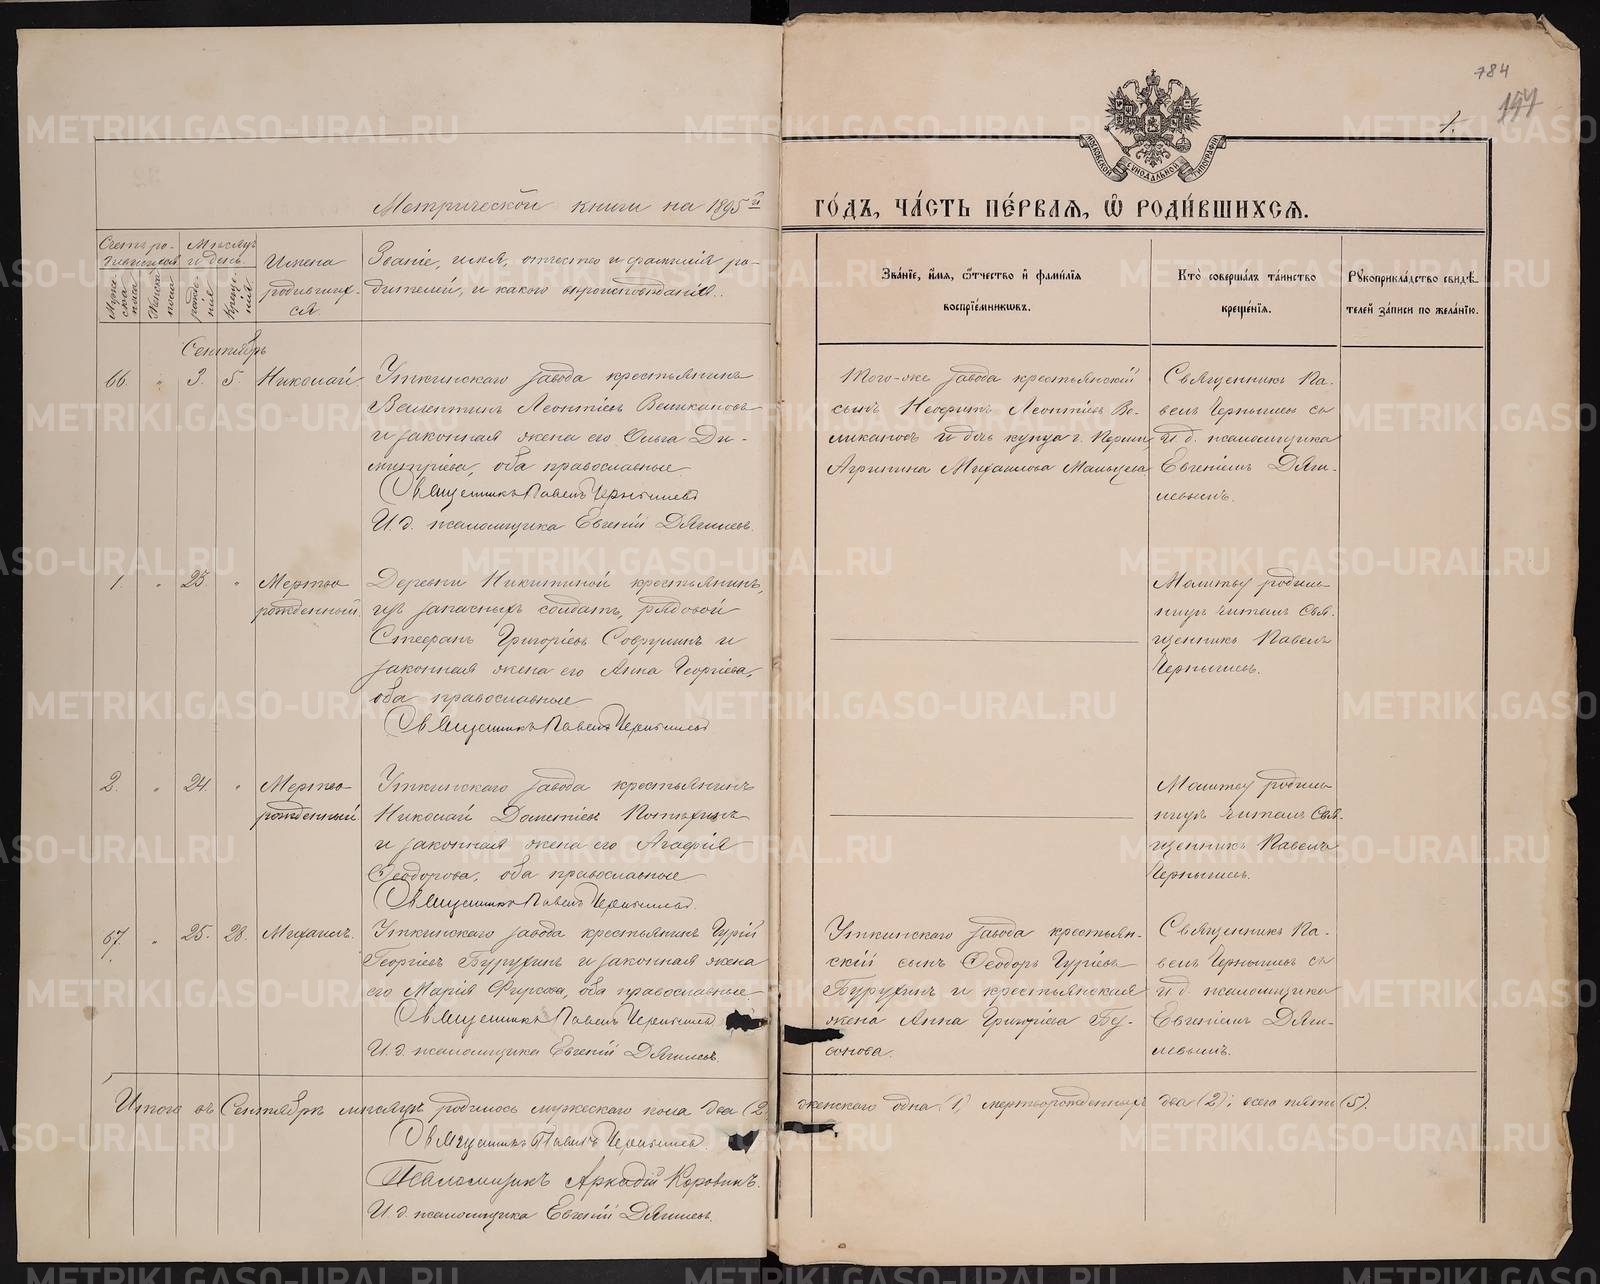 784
197
1.
МОСКОВСКОЙ СѴНОДАЛЬНОЙ ТИПОГРАФІИ
Метрической книги на 1895й
ГО́ДЪ, ЧА́СТЬ ПЕ́РВАѦ, Ѡ РОДИ́ВШИХСѦ.
Счетъ ро-
дившихся
Мѣсяцъ
и день
Мужеска
пола
Женска
пола
рожде-
нія
Креще-
нія
Имена
родивших-
ся.
Званіе, имя, отчество и фамилія ро-
дителей, и какого вѣроисповѣданія.
Зва́нїе, и҆́мя, ѻ҆́тчество и҆ фамилїя
воспрїе́мникѡвъ.
Кто̀ соверша́лъ та́инство
креще́нїя.
Рꙋкоприкла́дство свидѣ́-
телей за́писи по жела́нїю.
Сентябрь
66. " 3. 5. Николай
Уткинскаго завода крестьянинъ
Валентинъ Леонтіевъ Великановъ
и законная жена его Ольга Ди-
митріева, оба православные
Священникъ Павелъ Чернышевъ
И. д. псаломщика Евгеній Дягилевъ.
Того-же завода крестьянскій
сынъ Неофитъ Леонтіевъ Ве-
ликановъ и дочь купца г. Перми
Агрипина Михаилова
Священникъ Па-
велъ Чернышевъ съ
И. д. псаломщика
Евгеніемъ Дяги-
левымъ.
1. " 23. " Мертво
рожденный.
Деревни Никитиной крестьянинъ,
изъ запасныхъ солдатъ, рядовой
Стефанъ Григоріевъ и
законная жена его Анна Георгіева,
оба православные
Священникъ Павелъ Чернышевъ
Молитву родиль
ницѣ читалъ Свя-
щенникъ Павелъ
Чернышевъ.
2. " 24. " Мертво-
рожденный
Уткинскаго завода крестьянинъ
Николай Дометіевъ Потѣхинъ
и законная жена его Агафія
Ѳеодорова, оба православные
Священникъ Павелъ Чернышевъ.
Молитву родиль
ницѣ читалъ Свя-
щенникъ Павелъ
Чернышевъ.
67. " 25. 28. Михаилъ.
Уткинскаго завода крестьянинъ Гурій
Георгіевъ Бурухинъ и законная жена
его Марія Фирсова, оба православные.
Священникъ Павелъ Чернышевъ
И. д. псаломщика Евгеній Дягилевъ.
Уткинскаго завода крестьян-
скій сынъ Ѳеодоръ Гуріевъ
Бурухинъ и крестьянская
жена Анна Григоріева Бу-
сонова.
Священникъ Па-
велъ Чернышевъ съ
И д. псаломщика
Евгеніемъ Дяги-
левымъ.
Итого въ Сентябрѣ мѣсяцѣ родилось мужескаго пола два (2
женскаго одна (1) мертворожденныхъ два (2); всего пять (5).
Священникъ Павелъ Чернышевъ.
Псаломщикъ Аркадій Коровинъ.
И. д. псаломщика Евгеній Дягилевъ.
METRIKI.GASO-URAL.RU